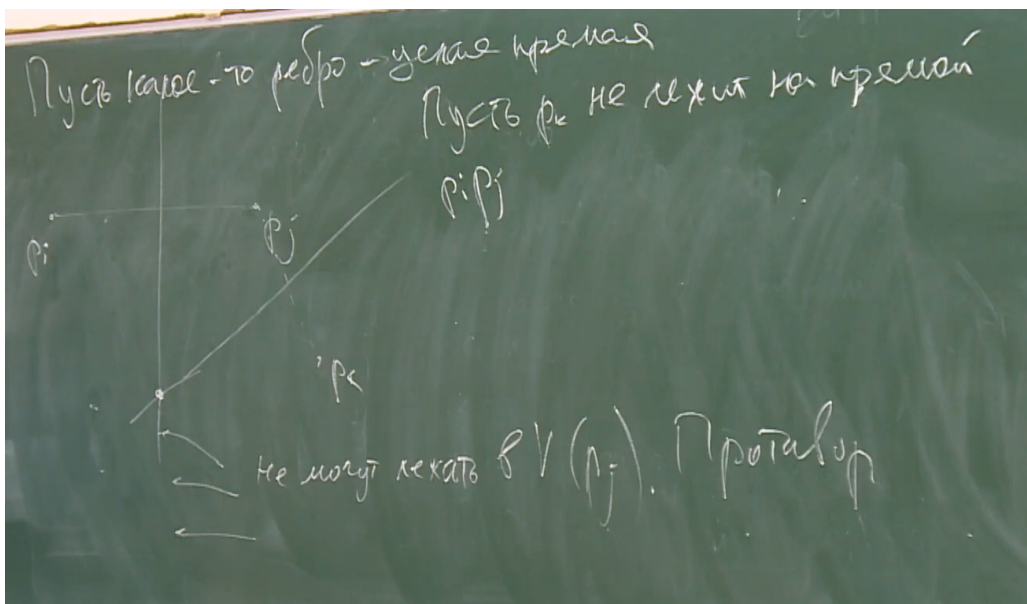 Пусть какое-то ребро - целая прямая
Пусть pₖ не лежит на прямой
pᵢpⱼ
pᵢ
pⱼ
pₖ
не могут лежать в V(pⱼ). Противор